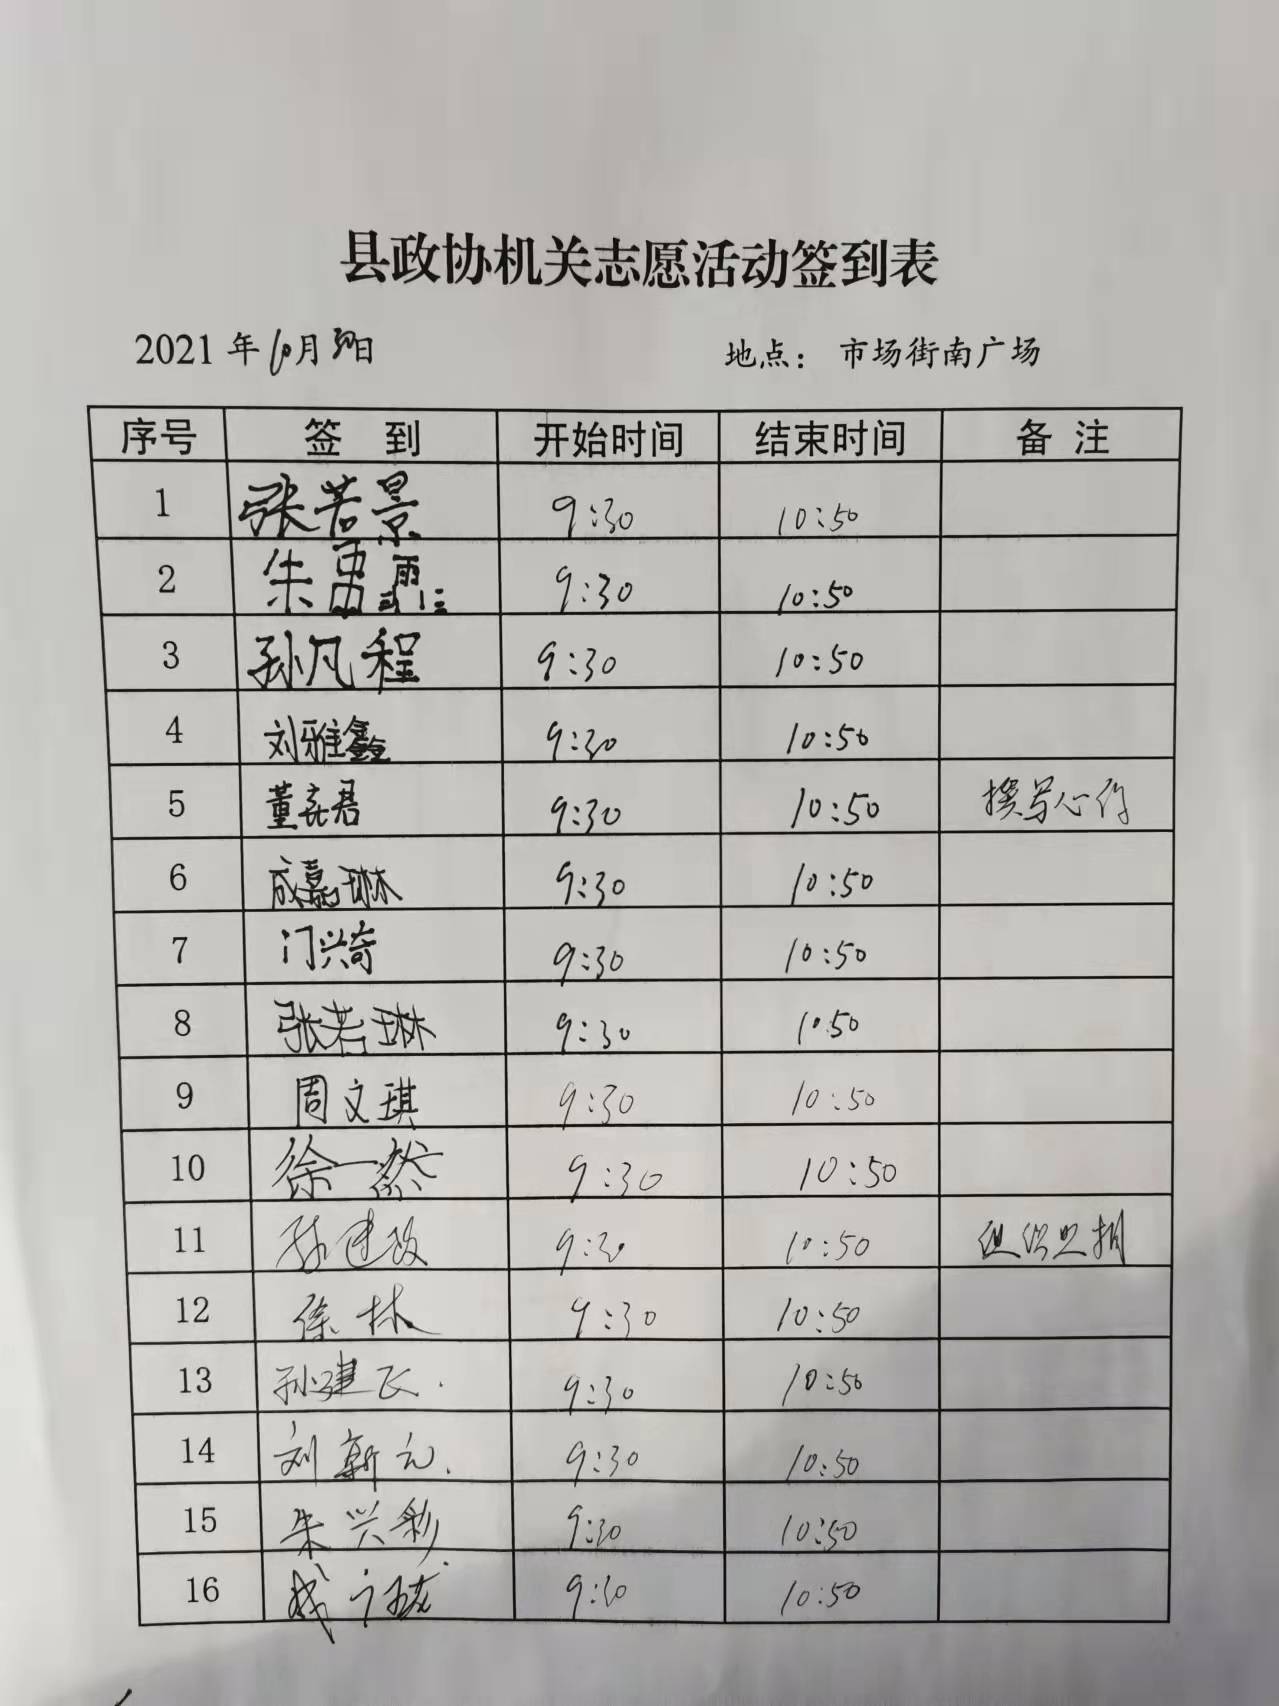 县政协机关志愿活动签到表
2021年10月30日 地点： 市场街南广场
序号 签 到 开始时间 结束时间 备 注
1 张若景 9:30 10:50
2 朱 9:30 10:50
3 孙凡程 9:30 10:50
4 刘雅鑫 9:30 10:50
5 董奕君 9:30 10:50 撰写心得
6 成嘉琳 9:30 10:50
7 门兴奇 9:30 10:50
8 张若琳 9:30 10:50
9 周文琪 9:30 10:50
10 徐一然 9:30 10:50
11 建政 9:30 10:50 组织
12 徐林 9:30 10:50
13 孙建飞. 9:30 10:50
14 刘新元. 9:30 10:50
15 朱兴彩 9:30 10:50
16 9:30 10:50